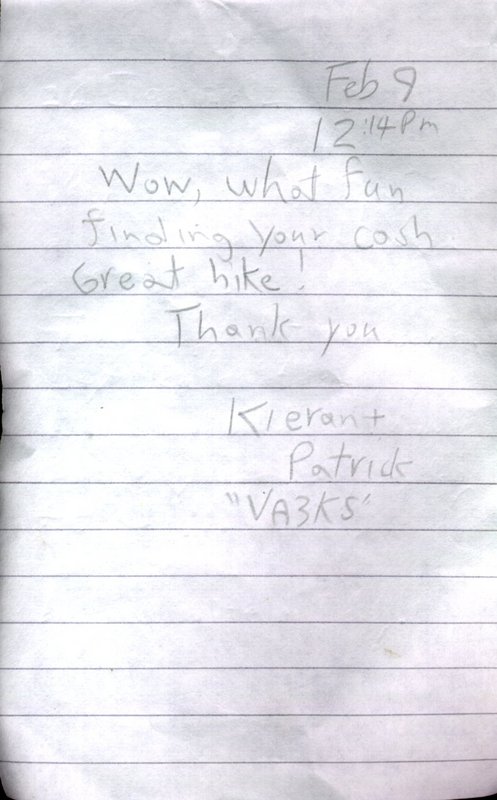 Feb 9
12:14 Pm
Wow, what fun
finding your cash
Great hike!
Thank you
Kieran +
Patrick
"VA3KS'